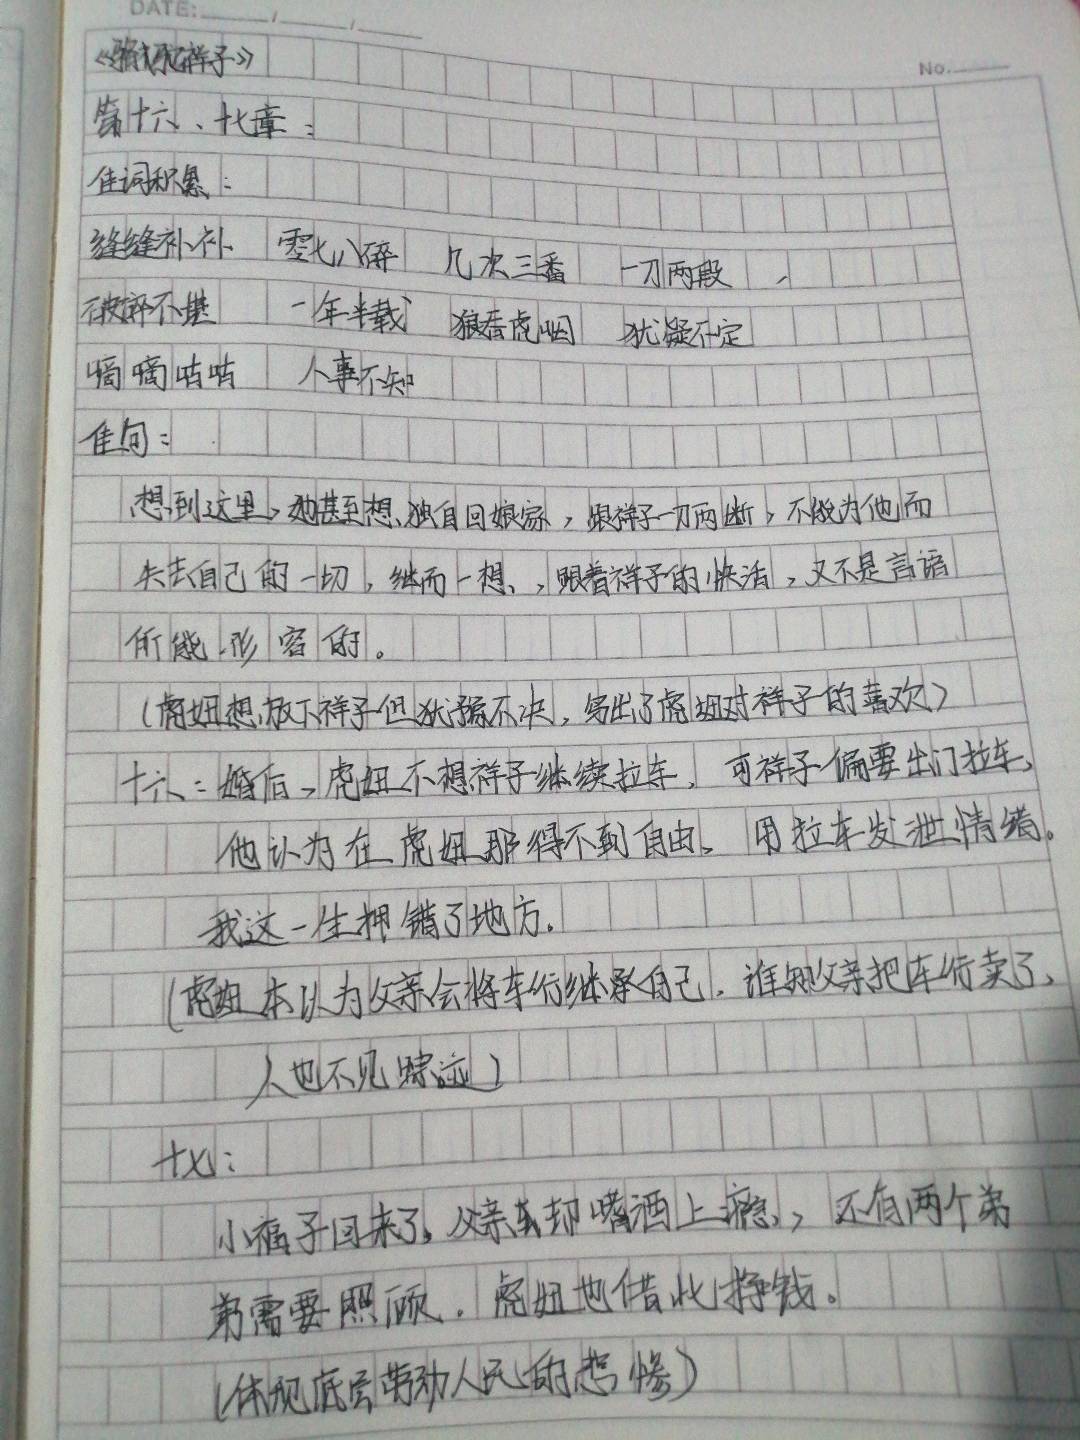 DATE: / /
No.
《骆驼祥子》
第十六、十七章：
佳词积累：
缝缝补补 零七八碎 几次三番 一刀两段
破碎不堪 一年半载 狼吞虎咽 犹疑不定
嘀嘀咕咕 人事不知
佳句：
想到这里，她甚至想独自回娘家，跟祥子一刀两断，不能为他而
失去自己的一切，继而一想，跟着祥子的快活，又不是言语
所能形容的。
（虎妞想放下祥子但犹豫不决，写出了虎妞对祥子的喜欢）
十六：婚后，虎妞不想祥子继续拉车，可祥子偏要出门拉车，
他认为在虎妞那得不到自由，用拉车发泄情绪。
我这一生押错了地方。
（虎妞本以为父亲会将车行继承自己，谁知父亲把车行卖了，
人也不见踪迹）
十七：
小福子回来了，父亲却嗜酒上瘾，还有两个弟
弟需要照顾，虎妞也借此挣钱。
（体现底层劳动人民的悲惨）